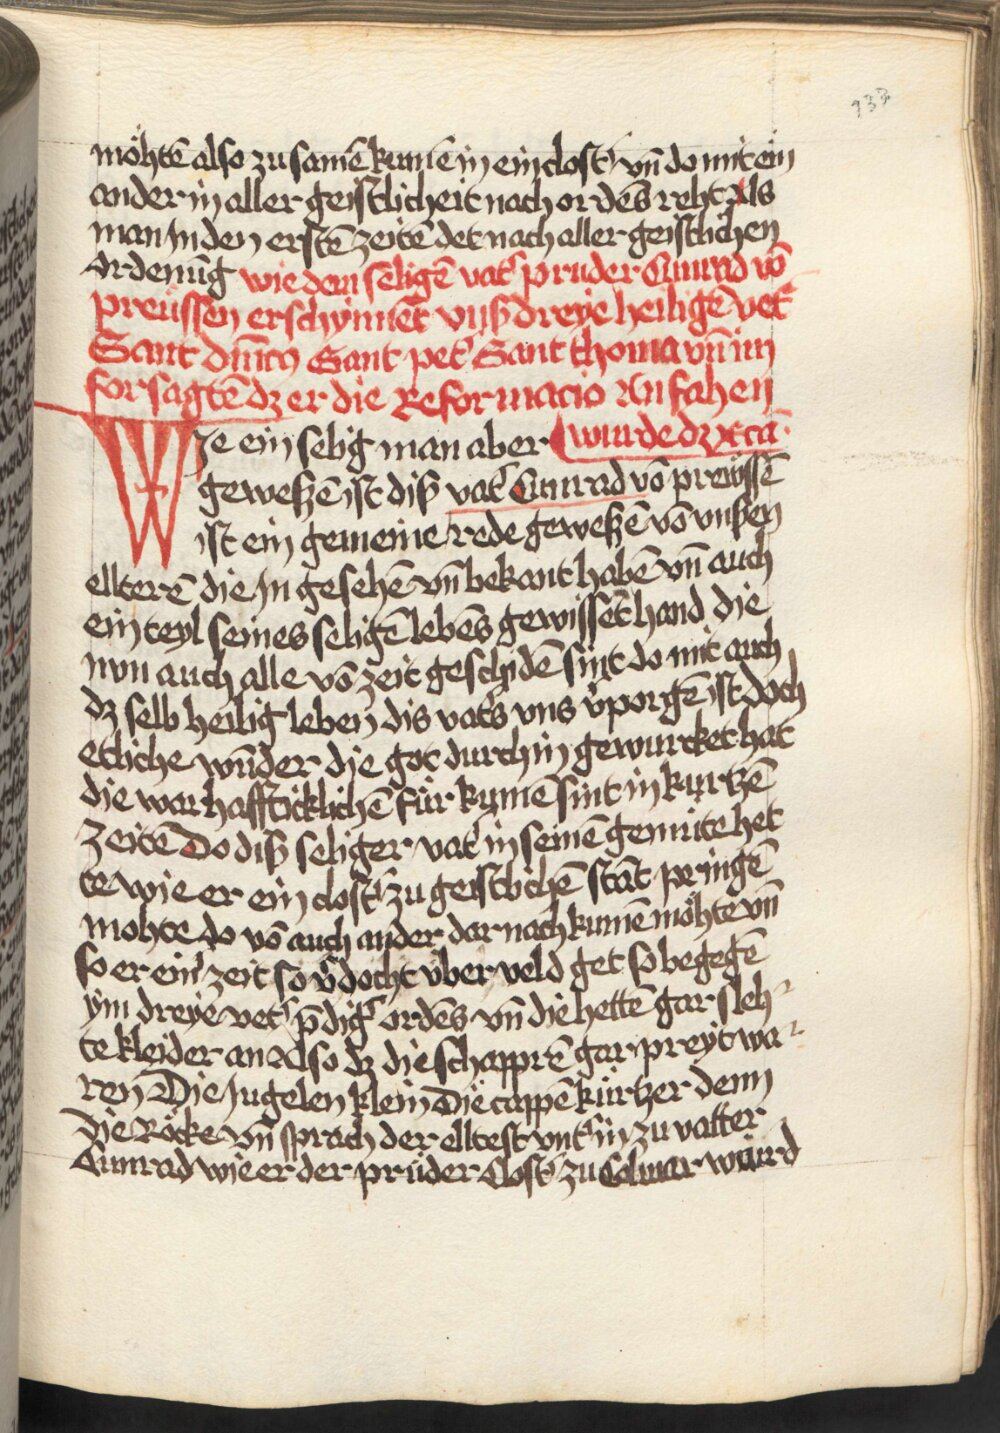 133
möhtē also zu samē kumē in ein clost' vn̄ do mit ein
ander in aller geistlicheit nach ordēs reht Als
man In den erstē zeitē det nach aller geistlichen
Ordenūg wie dem seligē vat' pruder Cunrad vō
preüssen erschynnēt vnß dreye heiligē vet'
Sant dm̄cꝰ Sant pet' Sant thoma vn̄ im
for sagtē dz er die Reformacio An fahen
wurde dz x ca
WIe ein selig man aber
geweßē ist diß vat' Cunrad vō preyssē
ist ein gemeine rede geweßē vō vnßen
ellterē die In gesehē vn̄ bekant habē vn̄ auch
ein teyl seines seligē lebēs gewissēt hand die
nvn auch alle vō zeit geschidē sint do mit auch
dz selb heilig leben dis vat's vns v'porgē ist doch
etliche wūder die got durch in gewurcket hat
die warhaffticklichē für kumē sint in kurtzē
zeitē Do diß seliger vat' in seinē gemüte het
te wie er ein clost' zu geistlichē stāt pringē
mohte do vō auch ander dar nach kumē möhte vn̄
so er ein' zeit so v'docht über veld get so begegē
ym dreye vet' p̄dig' ordēs vn̄ die hettē gar sleh
te kleider an Also dz die schapprē gar preyt wa
ren Die Jugelen klein Die cappē kürtzer denn
die Röcke vn̄ sprach der elltest vnt' in zu vatter
Cunrad wie er der prüder Clost' zu Colmar würd